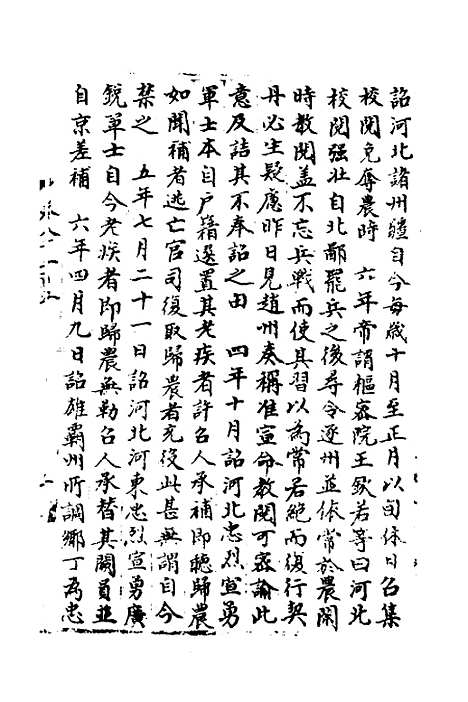 詔河北諸州彊自今每歲十月至正月以旬休日召集
校閱免奪農時　六年帝謂樞密院王欽若等曰河北
校閱强壯自北鄙罷兵之後尋令逐州並依常於農閑
時教閱蓋不忘兵戰而使其習以為常若絶而復行契
丹必生疑慮昨日見趙州奏稱准宣命教閱可密諭此
意及詰其不奉詔之由　四年十月詔河北忠烈宣勇
軍士本自戶籍選置其老疾者許召人承補即聽歸農
如聞補者逃亡官司復取歸農者充役此甚無謂自今
禁之　五年七月二十一日詔河北河東忠烈宣勇廣
銳軍士自今老疾者即歸農無勒召人承替其闕員並
自京差補　六年四月九日詔雄霸州所調鄉丁為忠